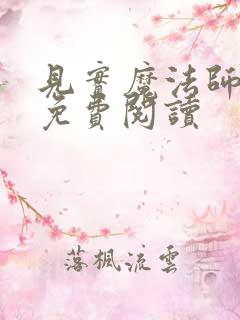 見習魔法師
免費閱讀
落楓流雲